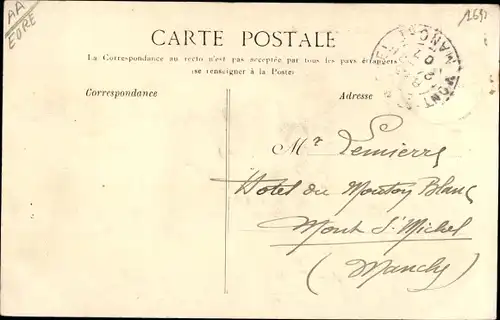 AA
EORE
CARTE POSTALE
La Correspondance au recto n'est pas acceptée par tous les pays étrangers
(se renseigner à la Poste)
Correspondance
Adresse
Mr Lemierre
Hotel du Mouton Blanc
Mont St Michel
(Manche)